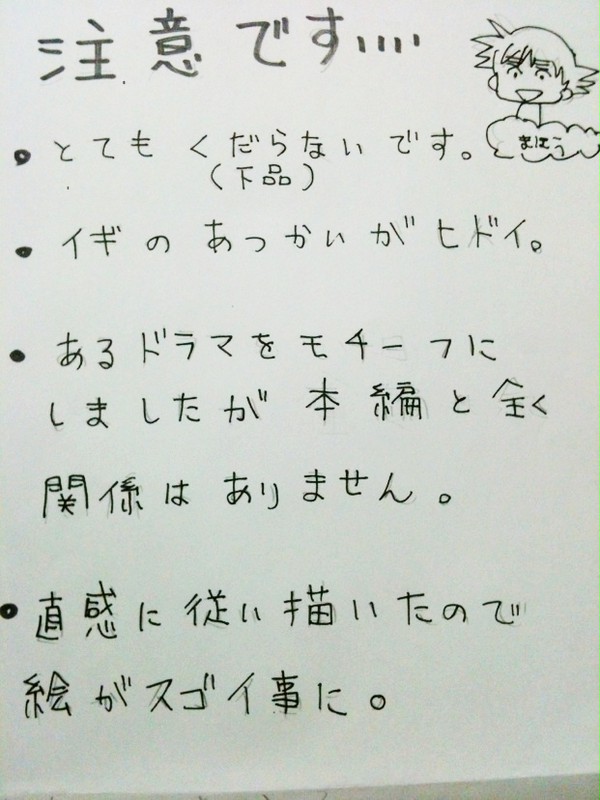 注意です....
まほう
・とても くだらないです。
(下品)
・イギの あつかいが ヒドイ。
・あるドラマをモチーフに
しましたが 本編と全く
関係は ありません。
・直感に従い描いたので
絵がスゴイ事に。